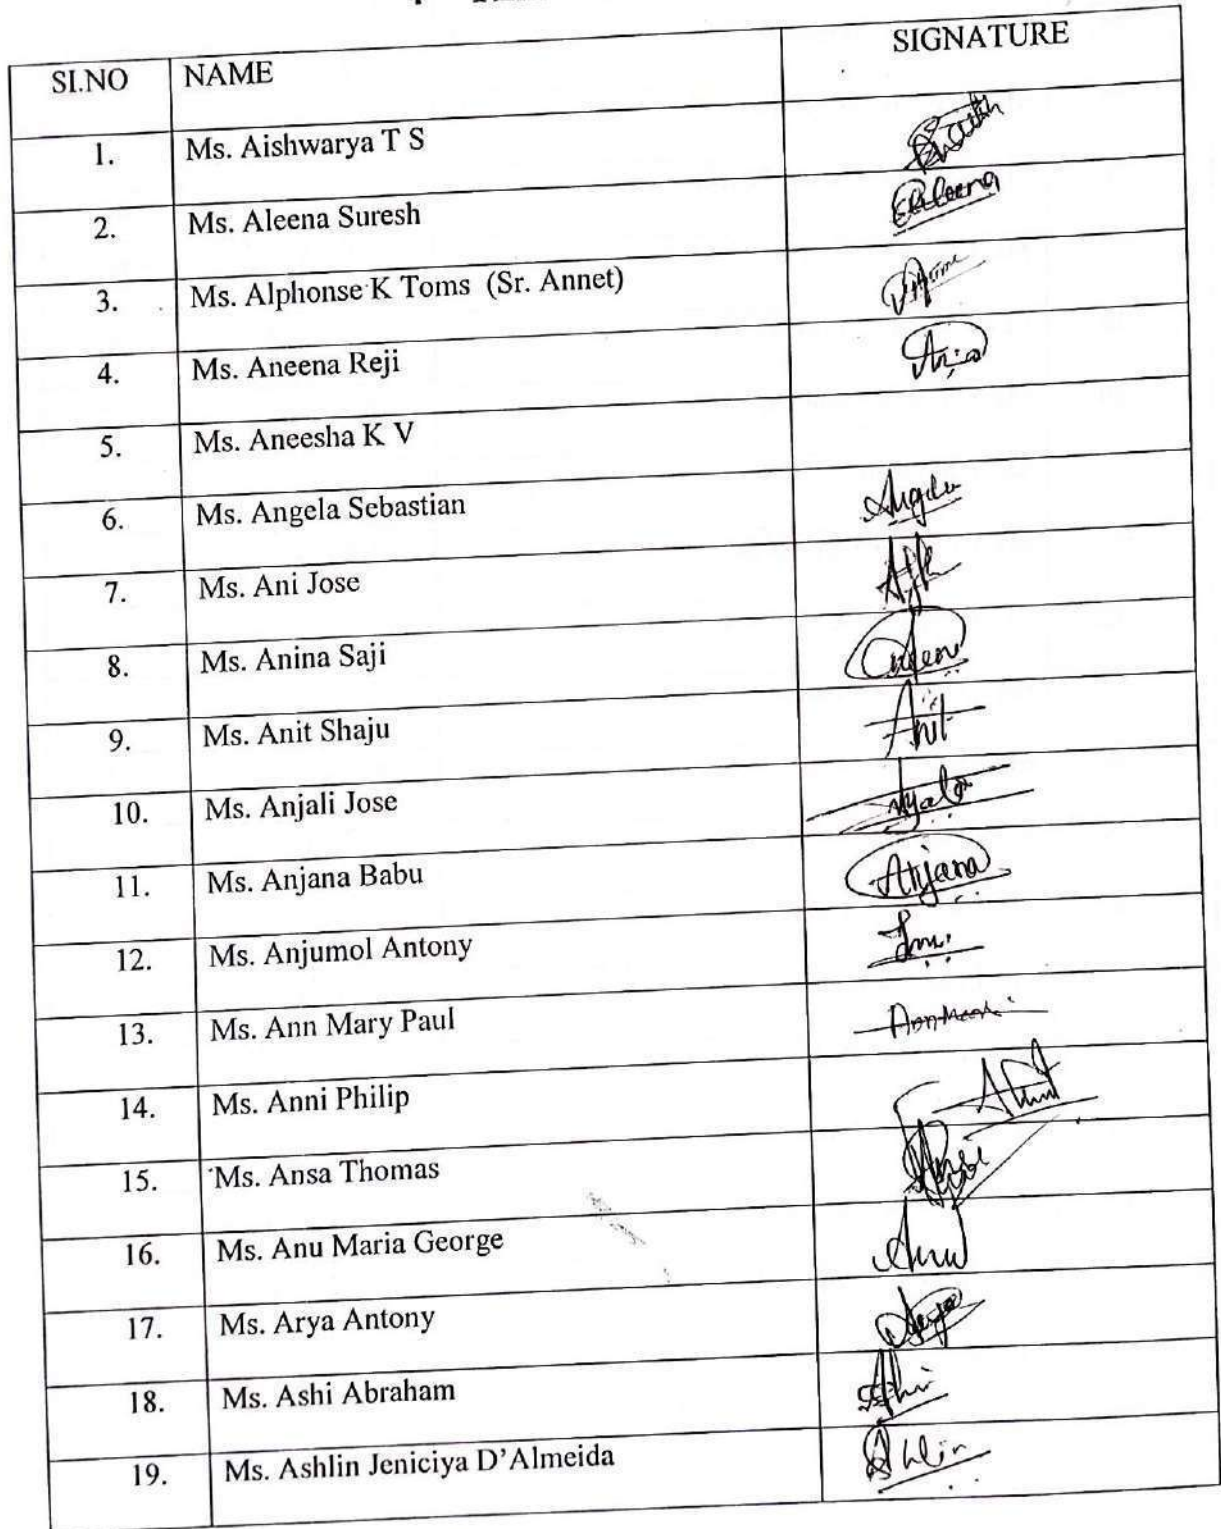 SI.NO NAME SIGNATURE
1. Ms. Aishwarya T S
2. Ms. Aleena Suresh Aleena
3. Ms. Alphonse K Toms (Sr. Annet)
4. Ms. Aneena Reji
5. Ms. Aneesha K V
6. Ms. Angela Sebastian Angela
7. Ms. Ani Jose
8. Ms. Anina Saji
9. Ms. Anit Shaju Anit
10. Ms. Anjali Jose
11. Ms. Anjana Babu Anjana
12. Ms. Anjumol Antony
13. Ms. Ann Mary Paul
14. Ms. Anni Philip
15. Ms. Ansa Thomas
16. Ms. Anu Maria George Anu
17. Ms. Arya Antony Arya
18. Ms. Ashi Abraham Ashi
19. Ms. Ashlin Jeniciya D'Almeida Ashlin